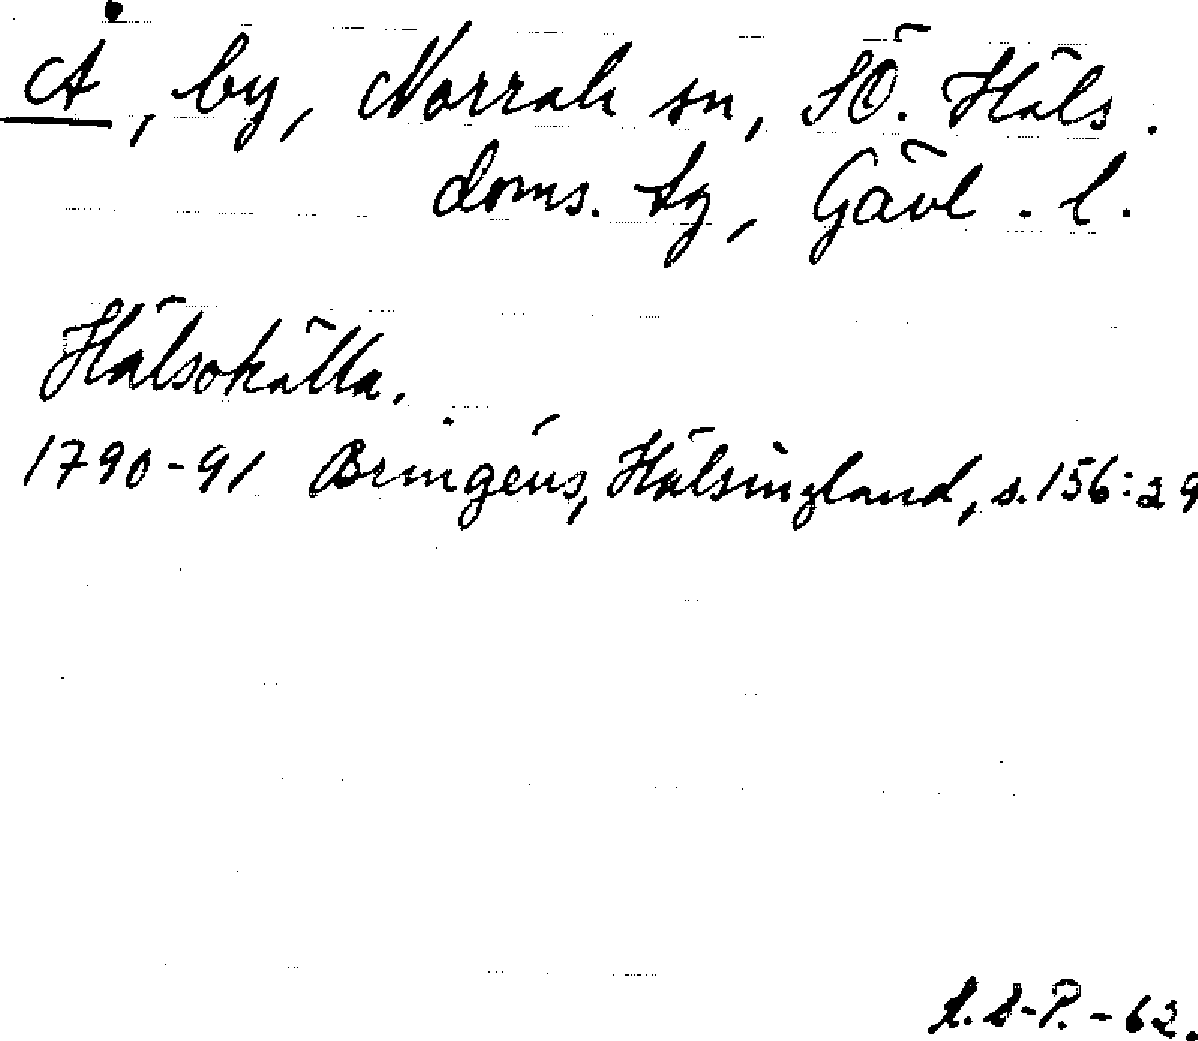 Å, by, Norrala sn, SÖ. Häls.
doms. tg, Gävl. l.
Hälsokälla.
1790-91 Bringéus, Hälsingland, s. 156:29
-P. -62.